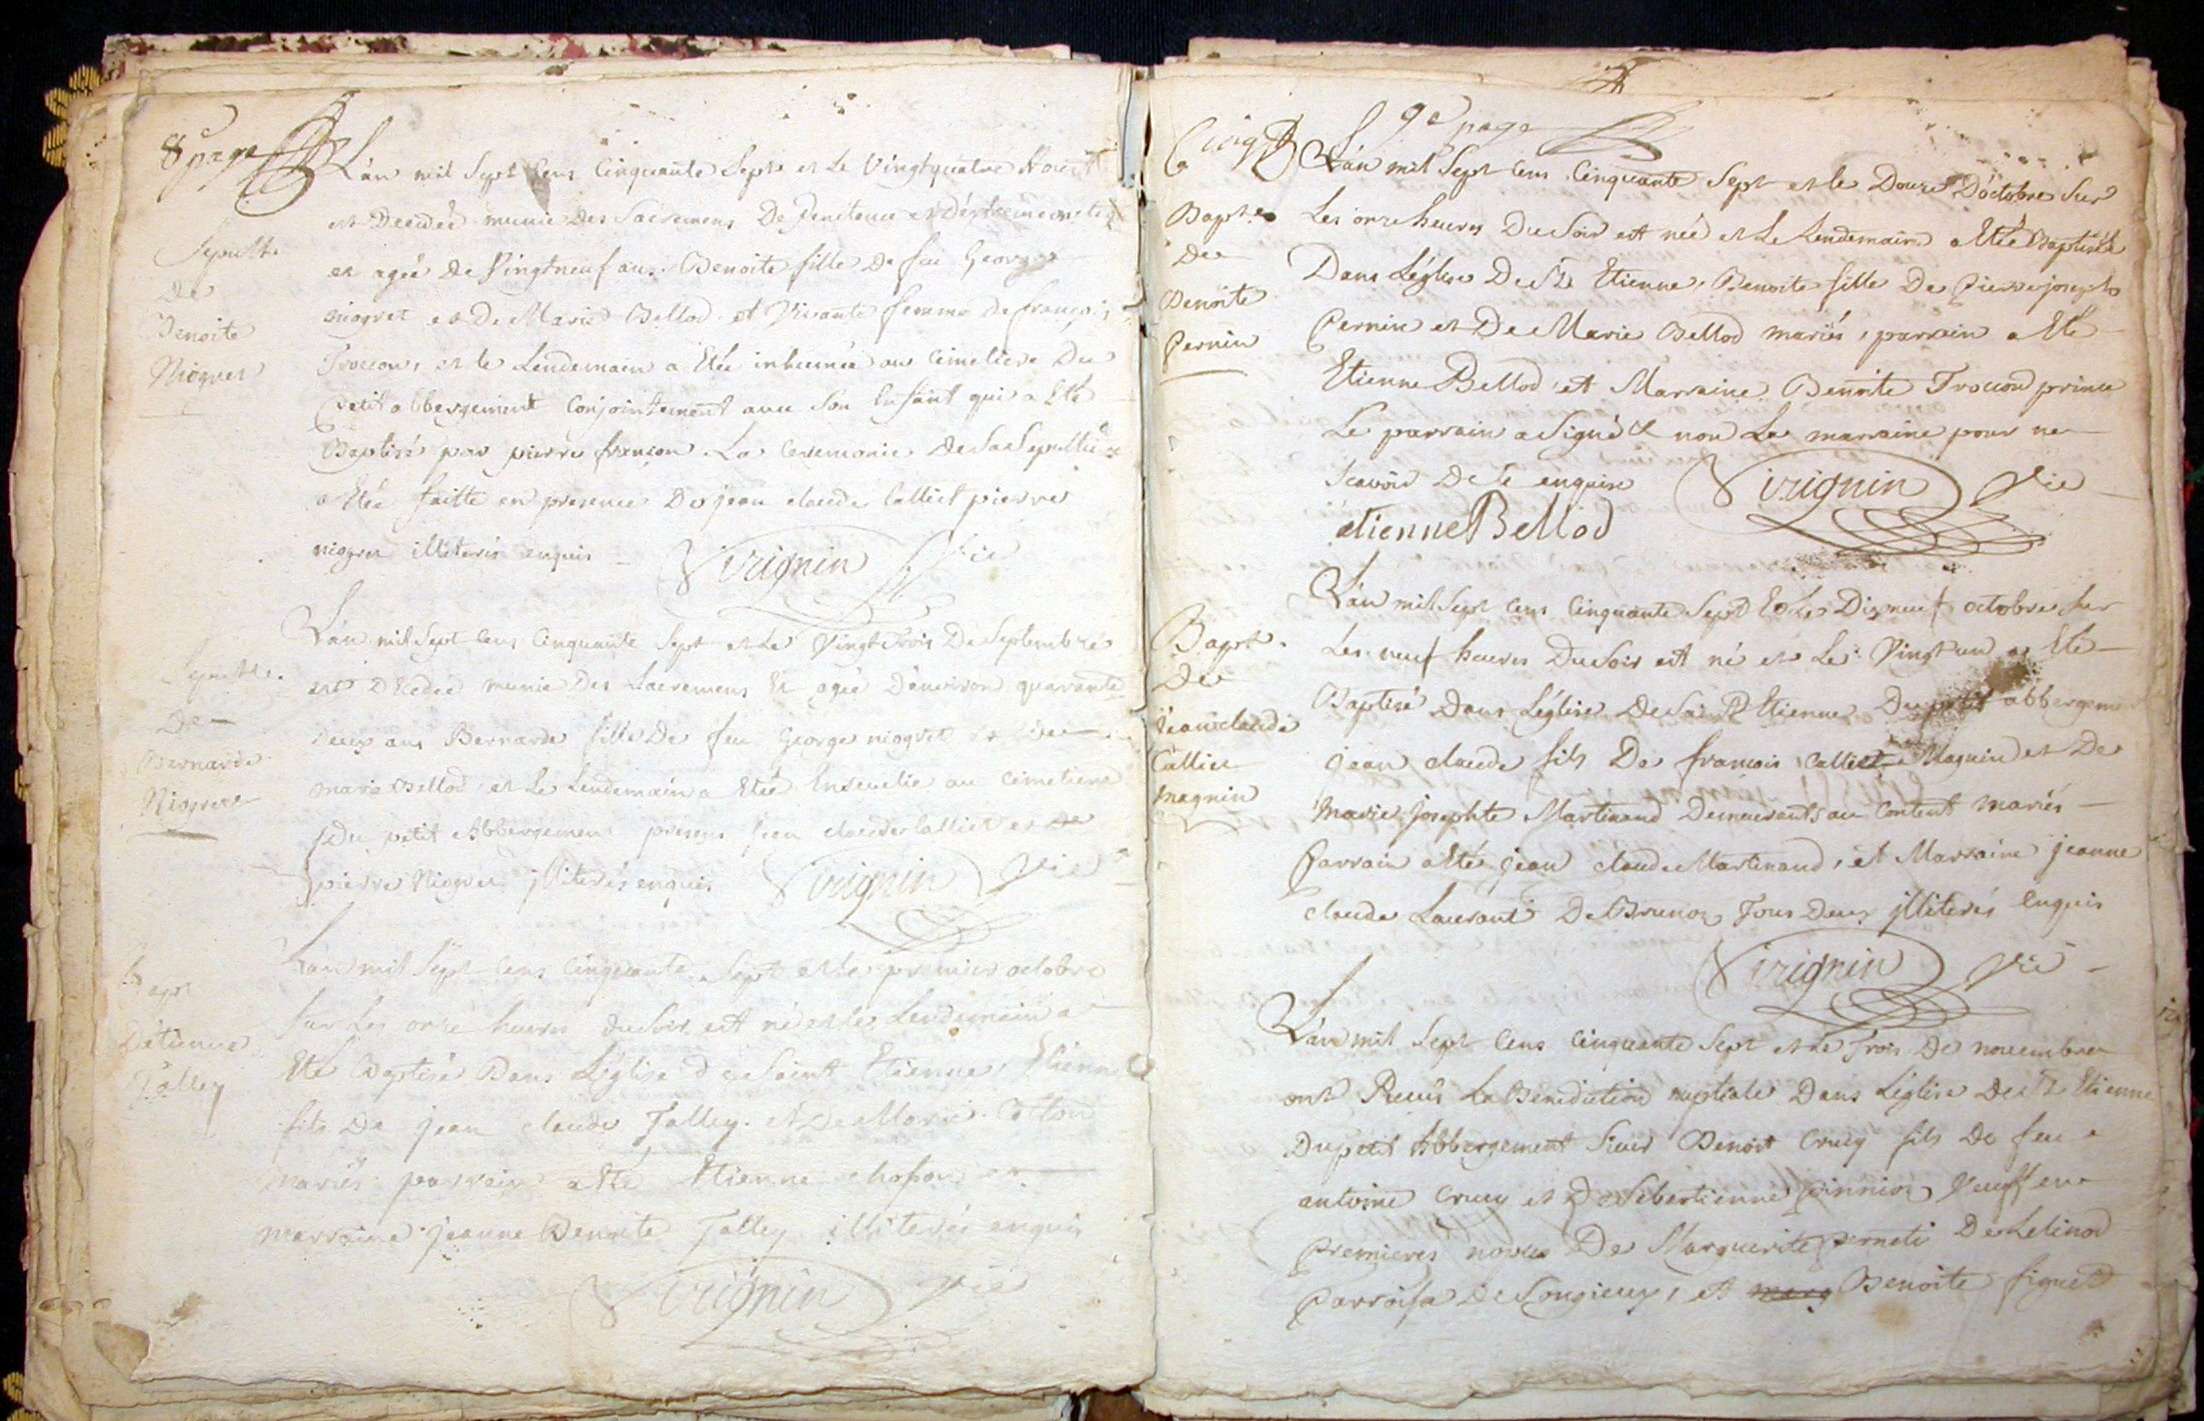 8 page
L'an mil Sept Cens Cinquante Sept et Le Vingtquatre Aoust
est Decedée munie Des Sacremens De Penitence et D'éxtreme onction
Sepult.
De
Benoite
Niogret
et ageé De Vingtneuf ans. Benoite fille De feu George
niogret et De Marie Bellod et Vivante femme De françois
Trocon, et le Lendemain a Etée inhumée au Cimetiere Du
petit abbergement Conjointement avec Son Enfant qui a Eté
Baptisé par pierre françon. La Ceremonie De Sa Sepulture
a Etée faitte en presence De jean claude Calliet pierre
niogret illiterés enquis Virignin Vic
L'an mil Sept Cens Cinquante Sept et Le Vingt trois De Septembre
Sepult.
De
Bernarde
Niogret
est Decedée munie Des Sacremens Et ageé D'environ quarante
deux ans Bernarde fille De feu George niogret et De
marie Bellod, et Le Lendemain a Etée Ensevelie au Cimetiere
Du petit Abbergement presens jean claude Calliet et De
pierre Niogret illiterés enquis Virignin Vic
Bapt
D'étienne
Talley
L'an mil Sept Cens Cinquante Sept et le premier octobre
Sur Les onze heures du Soir est né et le Lendemain a
Eté Baptisé Dans L'église de Saint Etienne, Etienne
fils De jean claude Talley et De Marie
mariés parrain a Eté Etienne et
marraine jeanne Benoite Talley illiterés enquis
Virignin Vic
9e page
L'an mil Sept Cens Cinquante Sept et le Douze D'octobre Sur
Bapt.
De
Benoite
Pernin
Les onze heures Du Soir est née et Le Lendemain a Etée Baptisée
Dans L'église De St Etienne, Benoite fille De Pierre joseph
Pernin et De Marie Bellod mariés, parrain a Eté
Etienne Bellod, et Marraine Benoite Trocond
Le parrain a Signé et non La marraine pour ne
Scavoir De ce enquise Virignin Vic
etienne Bellod
L'an mil Sept Cens Cinquante Sept Et Le Dixneuf octobre Sur
Bapt.
De
Jean claude
Calliet
magnin
Les neuf heures Du Soir est né et Le Vingt un a Eté
Baptisé Dans L'église De St Etienne Du petit abbergem
jean claude fils De francois Calliet Magnin et De
Marie josephte Martinand Demeurants au Content mariés
Parrain a Eté jean claude Martinand, et Marraine jeanne
claude Laurant De Tous Deux illiterés Enquis
Virignin Vic
L'an mil Sept Cens Cinquante Sept et Le Trois De novembre
ont Recus La Benediction nuptiale Dans L'église De St Etienne
Du petit Abbergement Sieur Benoit Cruey fils De feu
antoine Cruey et De Sebestienne Veuff en
Premieres nopces De Marguerite De Lelinod
Parroisse De Songieux, et Benoite figuet